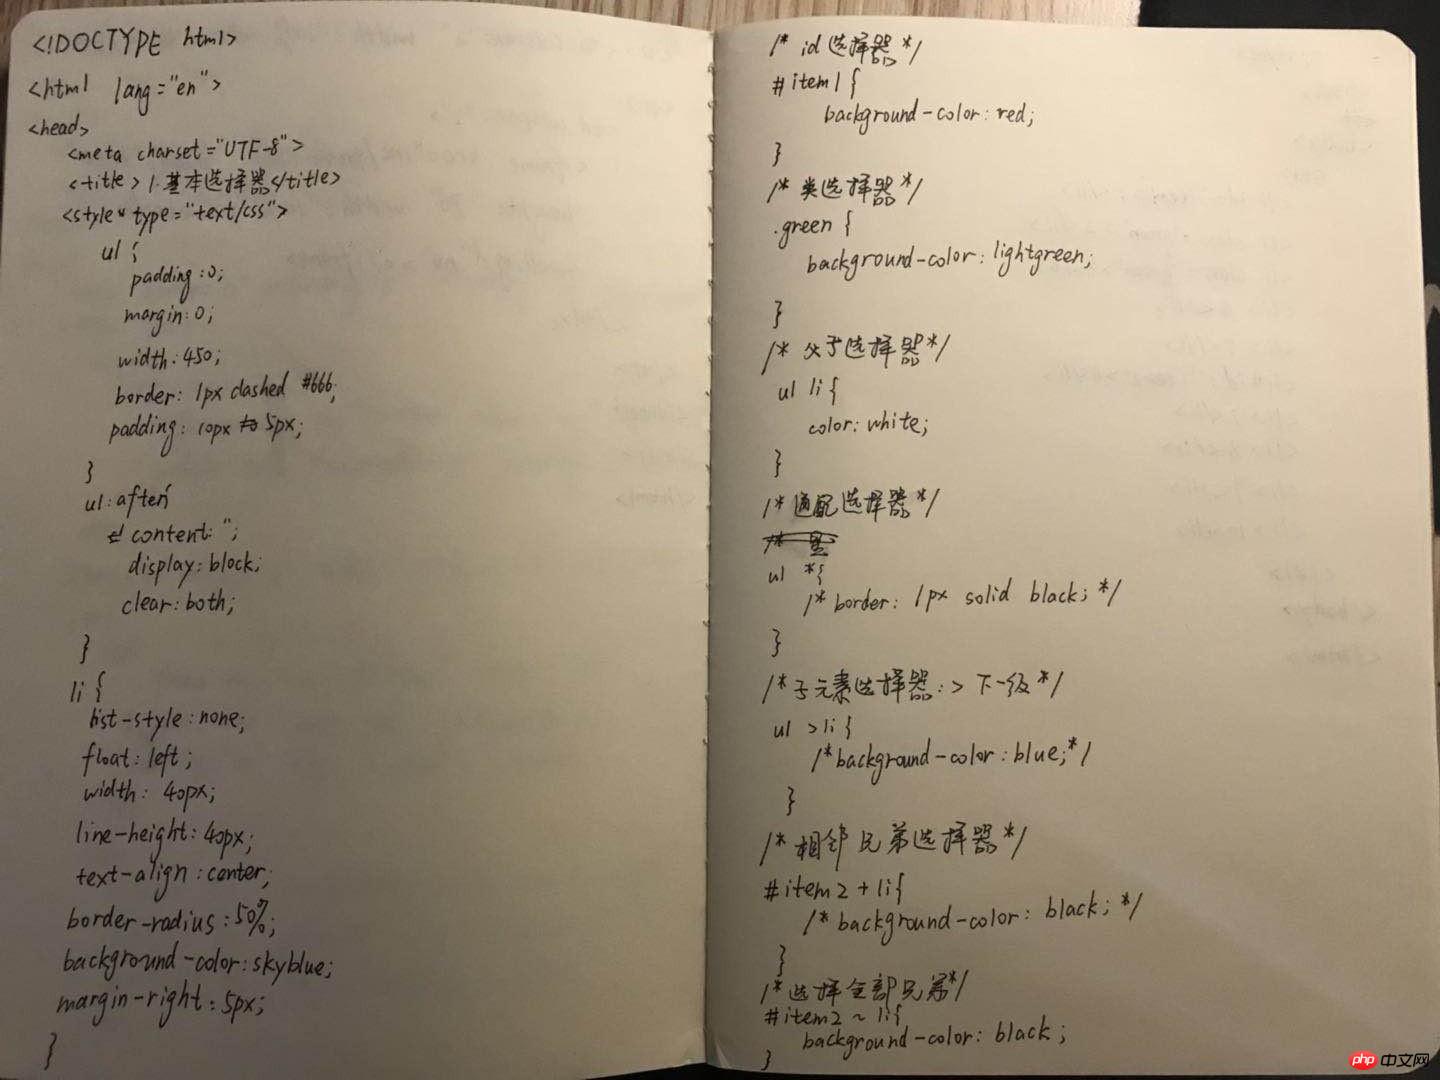 <!DOCTYPE html>
<html lang="en">
<head>
<meta charset="UTF-8">
<title>1.基本选择器</title>
<style type="text/css">
ul {
padding:0;
margin:0;
width:450;
border: 1px dashed #666;
padding: 10px 5px;
}
ul:after{
content:'';
display:block;
clear:both;
}
li {
list-style:none;
float:left;
width: 40px;
line-height:40px;
text-align:center;
border-radius:50%;
background-color:skyblue;
margin-right:5px;
}
/* id选择器*/
#item1{
background-color:red;
}
/* 类选择器*/
.green {
background-color: lightgreen;
}
/* 父子选择器*/
ul li{
color:white;
}
/*通配选择器*/
ul *{
/*border: 1px solid black;*/
}
/*子元素选择器:> 下一级*/
ul >li{
/*background-color:blue;*/
}
/*相邻兄弟选择器*/
#item2+li{
/*background-color: black;*/
}
/*选择全部兄弟*/
#item2 ~ li{
background-color: black;
}
php 中文网